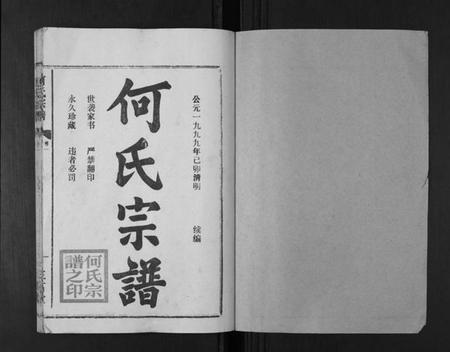 公元一九九九年己卯清明 续编
何氏宗譜
世袭家书 严禁翻印
永久珍藏 违者必司
何氏宗
譜之印
何氏宗譜